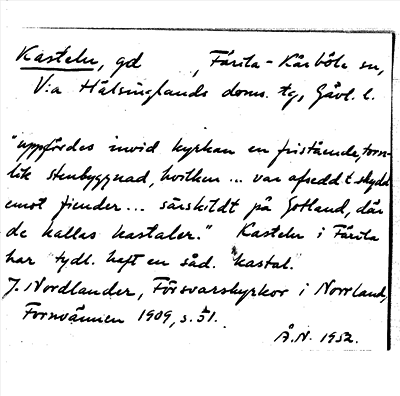 Kasteln, gd , Färila-Kårböle sn,
V:a Hälsinglands doms. tg, Gävl. l.
"uppfördes invid kyrkan en fristående, torn-
lik stenbyggnad, hvilken ... var afsedd t. skydd
emot fiender ... särskildt på Gotland, där
de kallas kastaler." Kasteln i Färila
har tydl. haft en såd. kastal.
J. Nordlander, Försvarskyrkor i Norrland,
Fornvännen 1909, s. 51.
Å.N. 1952.